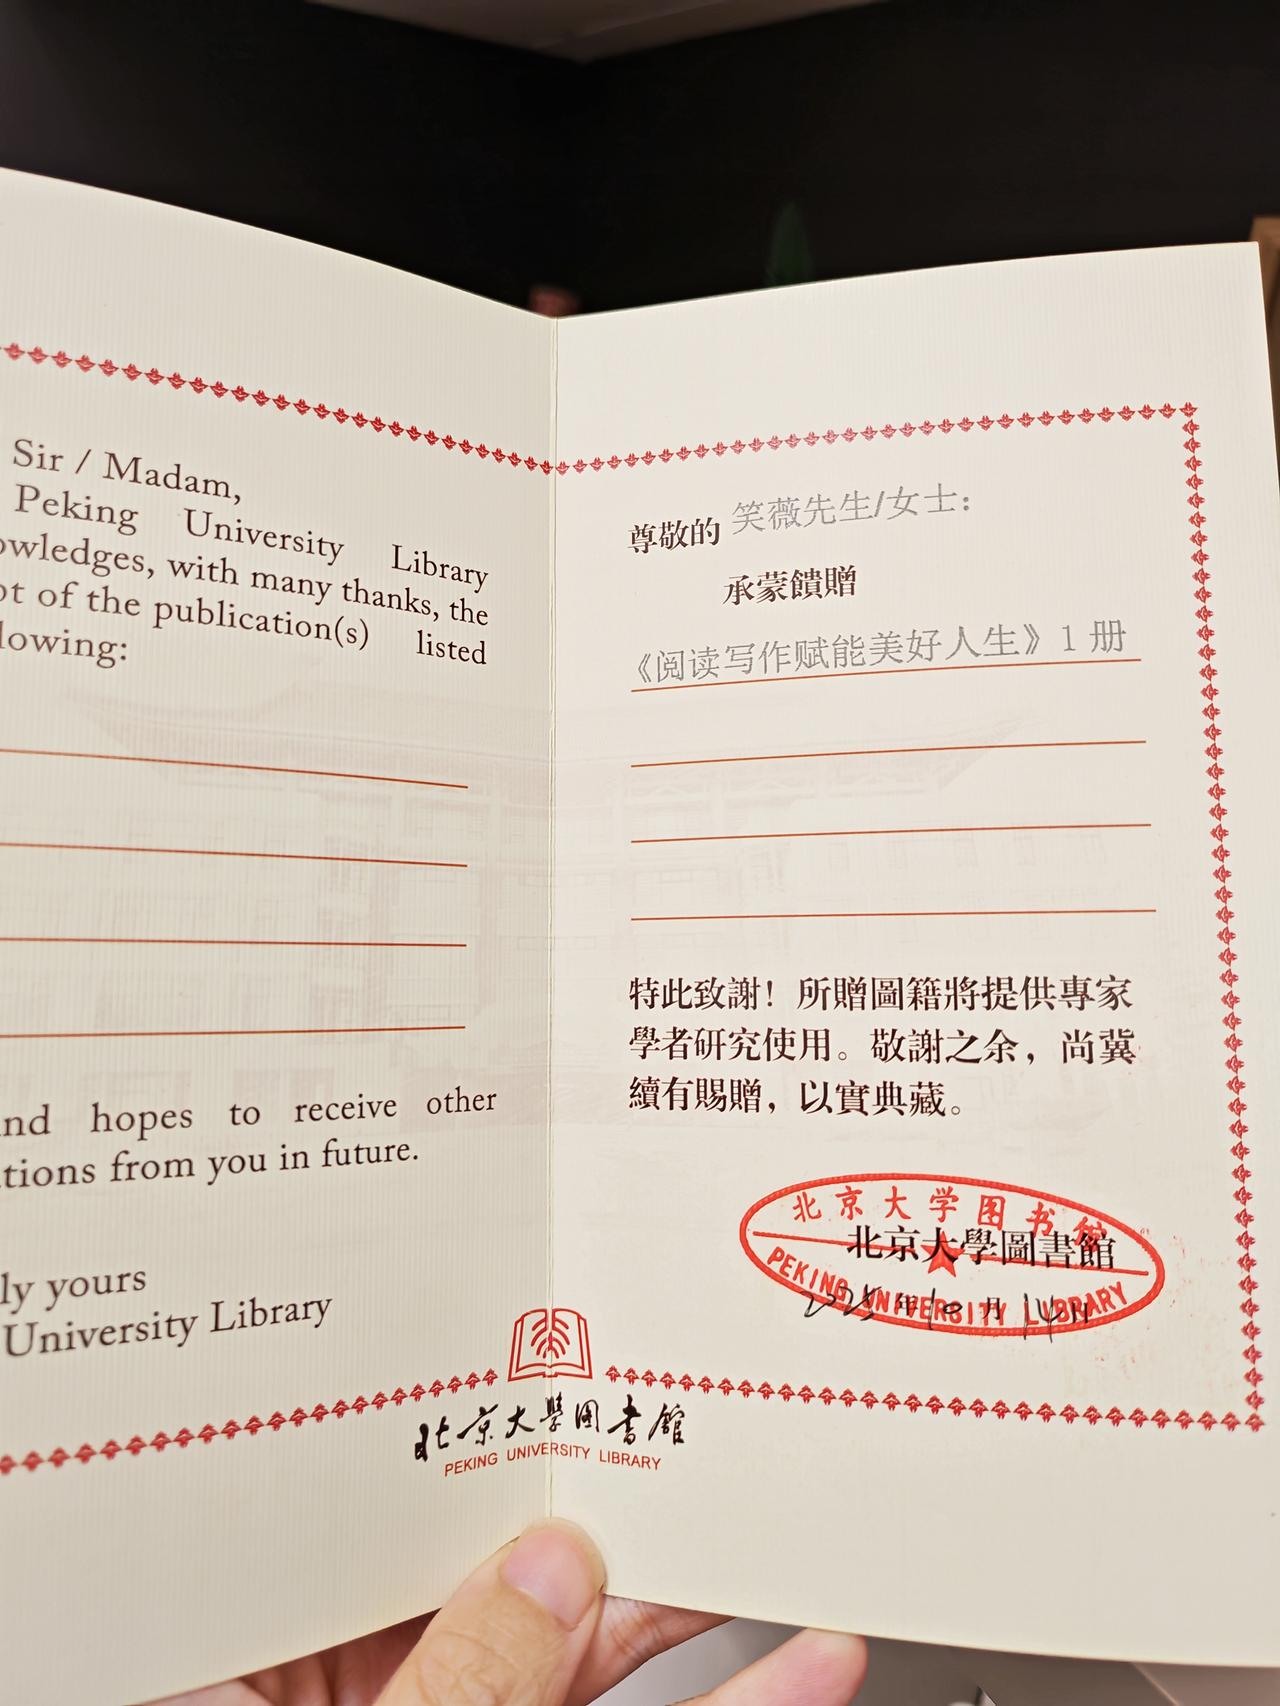 Sir / Madam,
Peking University Library
owledges, with many thanks, the
pt of the publication(s) listed
lowing:
and hopes to receive other
ations from you in future.
ly yours
University Library
尊敬的 笑薇先生/女士：
承蒙饋贈
《阅读写作赋能美好人生》1 册
特此致謝！所贈圖籍將提供專家
學者研究使用。敬謝之余，尚冀
續有賜贈，以實典藏。
北京大学图书馆
北京大學圖書館
PEKING UNIVERSITY LIBRARY
年10月14日
北京大學圖書館
PEKING UNIVERSITY LIBRARY